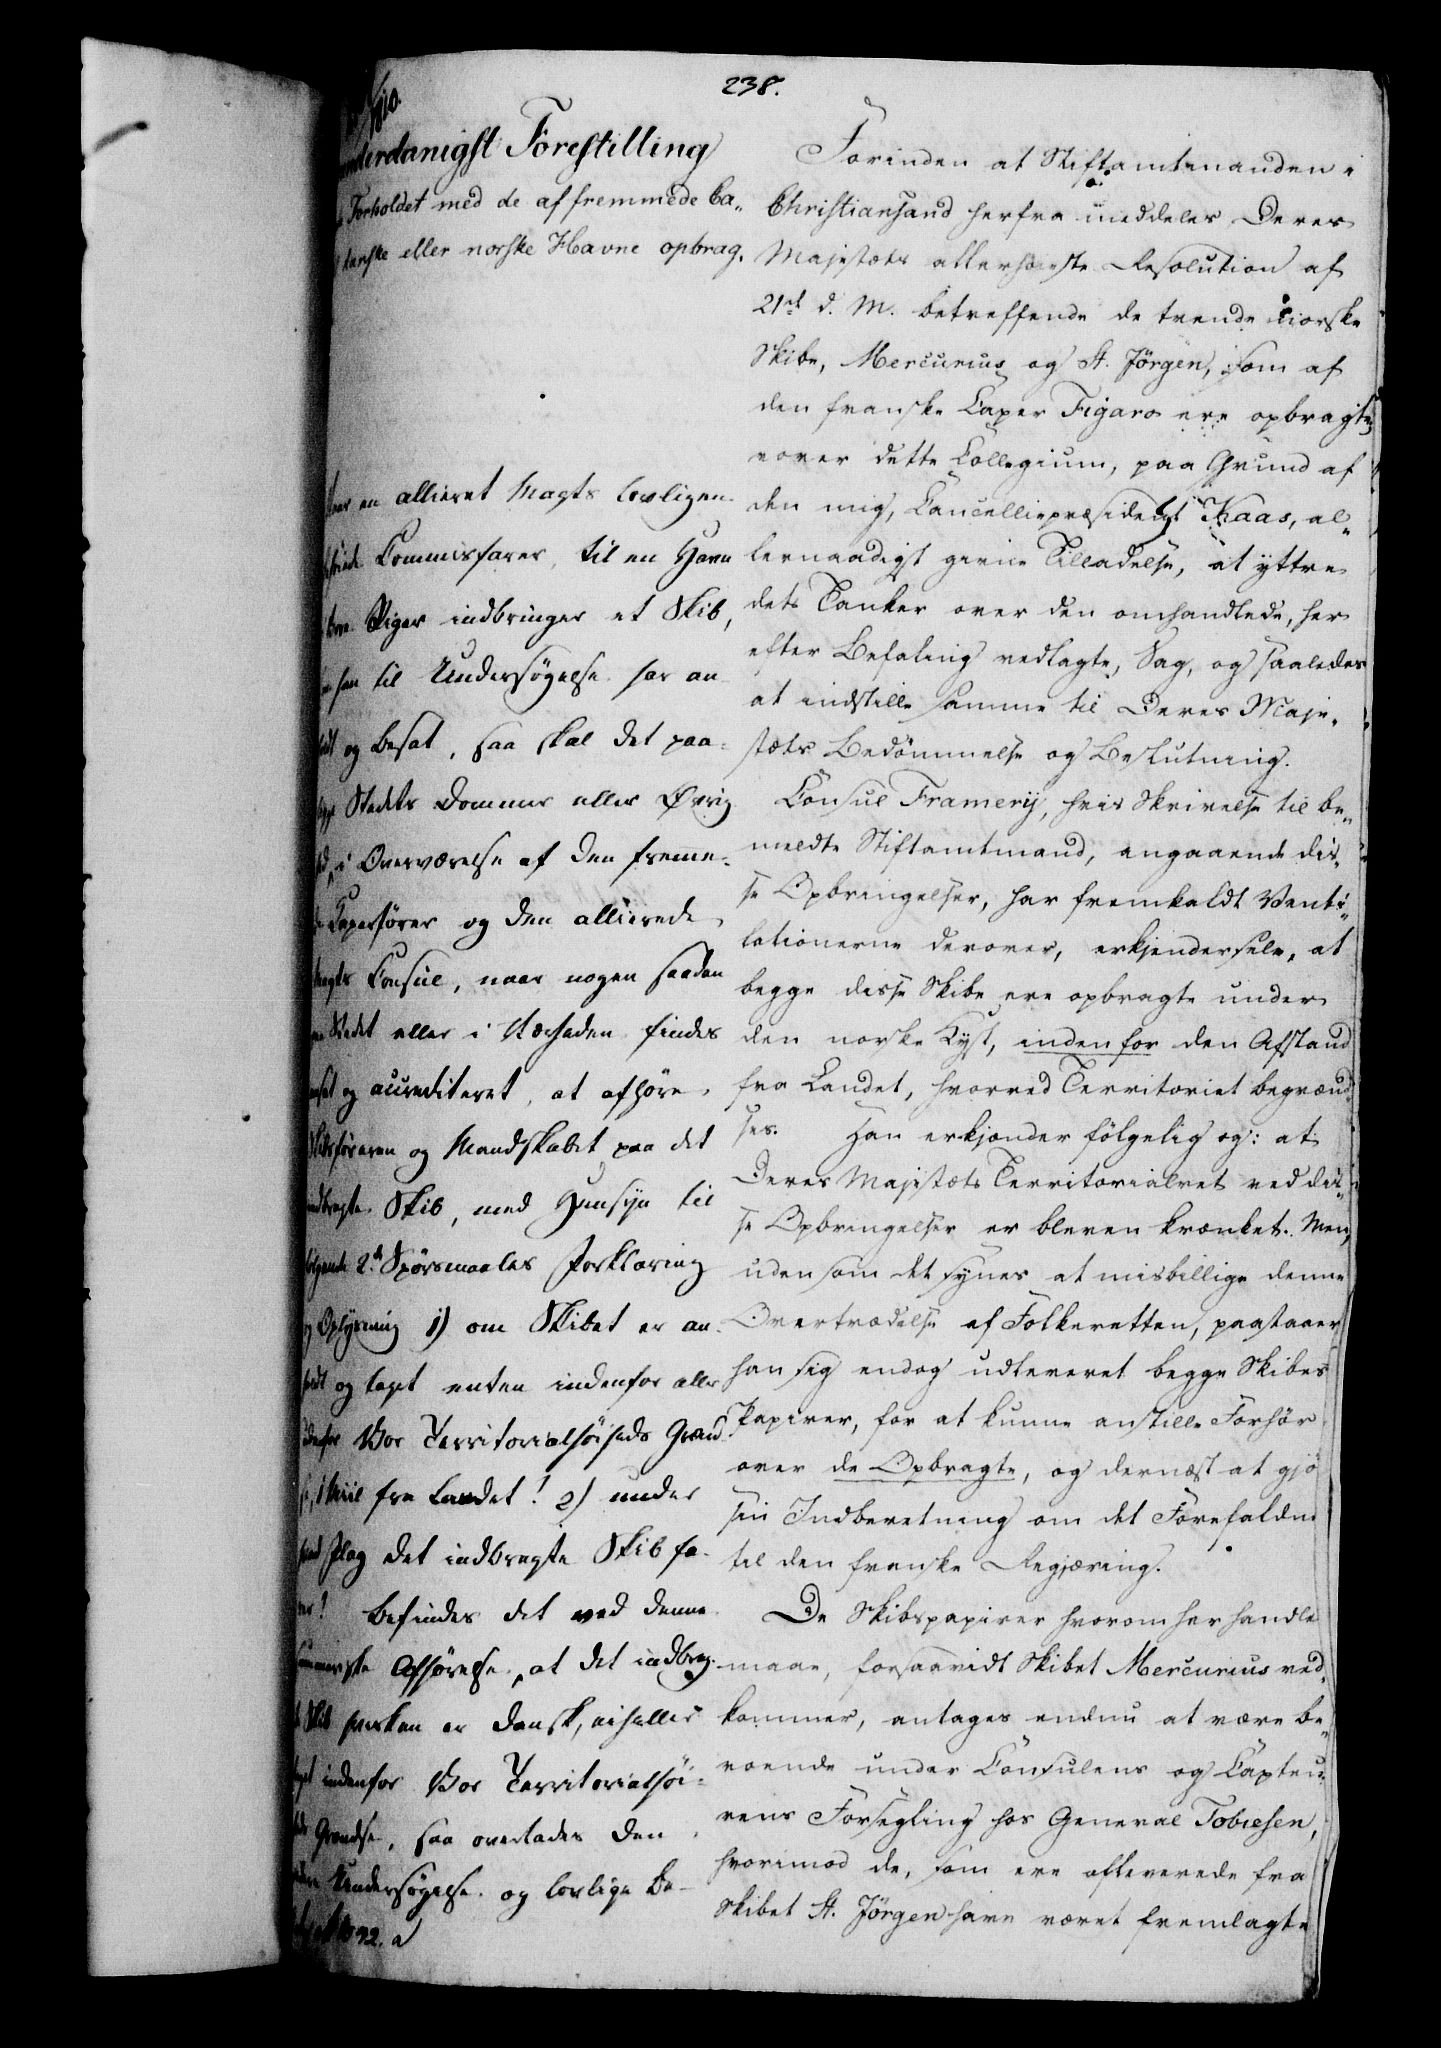 238.
1810.
underdanigst Forestilling
Forholdet med de af fremmede Ca„
danske eller norske Havne opbrag„
en allieret Magts lovligen
Commissarer, til en Havn
Riger indbringer et Skib,
han til Undersøgelse har an
og besat, saa skal det paa-
Stedets Dommer eller Øvrig
i Overværelse af den fremme-
Caperfører og den allierede
Magts Consul, naar nogen saadan
Stedet eller i Nærheden findes
og accrediteret, at afhøre
Skibsføreren og Mandskabet paa det
indbragte Skib, med Hensyn til
følgende 2de Spørsmaales Forklaring
og Oplysning 1) om Skibet er an-
og taget enten indenfor eller
udenfor Vor Territorialhøiheds Grænd
1 Miil fra Landet! 2) under
Flag det indbragte Skib fa-
rer? Befindes det ved denne
summariske Afhørelse, at det indbrag-
Skib hverken er dansk, eiheller
taget indenfor Vor Territorialhøi-
heds Grændse, saa overlades den
Undersøgelse og lovlige Be-
Forinden at Stiftamtmanden i
Christiansand herfra meddeles Deres
Majestæts allerhøieste Resolution af
21de d. M. betreffende de tvende norske
Skibe, Mercurius og St. Jörgen, som af
den franske Caper Figaro ere opbragte,
vover dette Collegium, paa Grund af
den mig, Cancelliepræsident Kaas, al„
lernaadigst givne Tilladelse, at yttre
dets Tanker over den omhandlede, her
efter Befaling vedlagte, Sag, og saaledes
at indstille samme til Deres Maje„
stæts Bedömmelse og Beslutning.
Consul Framery, hvis Skrivelse til be„
meldte Stiftamtmand, angaaende dis„
se Opbringelser, har fremkaldt Venti„
lationerne derover, erkjender selv, at
begge disse Skibe ere opbragte under
den norske Kyst, inden for den Afstand
fra Landet, hvorved Territoriet begrænd„
ses. Han erkjender fölgelig og: at
Deres Majestæts Territorialret ved dis„
se Opbringelser er bleven krænket. Men,
uden som det synes at misbillige denne
Overtrædelse af Folkeretten, paastaaer
han sig endog udleveret begge Skibes
Papirer, for at kunne anstille Forhör
over de Opbragte, og dernæst at gjö
sin Indberetning om det Forefaldne
til den franske Regjæring.
De Skibspapirer hvorom her handle
maae, forsaavidt Skibet Mercurius ved„
kommer, antages endnu at være be„
roende under Consulens og Capteu„
rens Forsegling hos General Tobiesen,
hvorimod de, som ere afleverede fra
Skibet St. Jörgen have været fremlagte